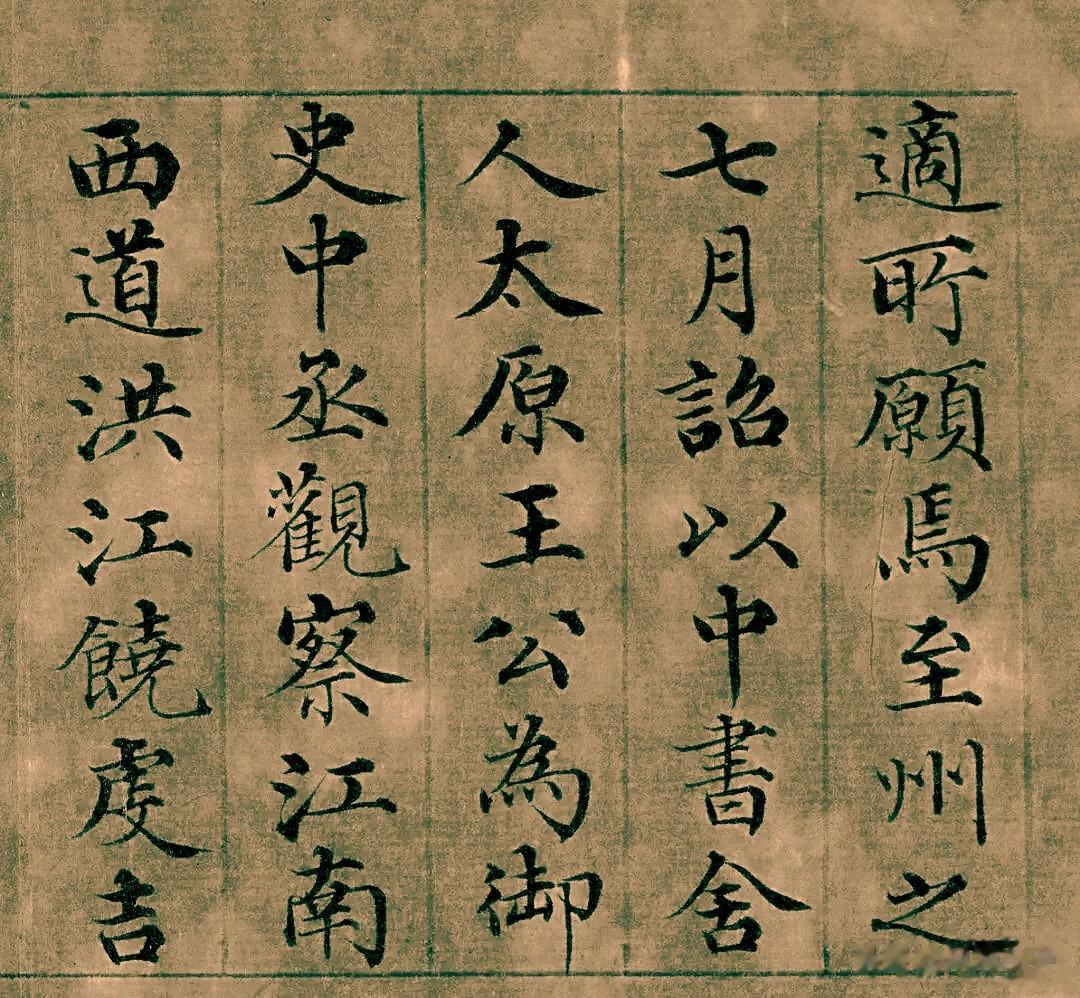 適所願焉至州之
七月詔以中書舍
人太原王公為御
史中丞觀察江南
西道洪江饒虔吉